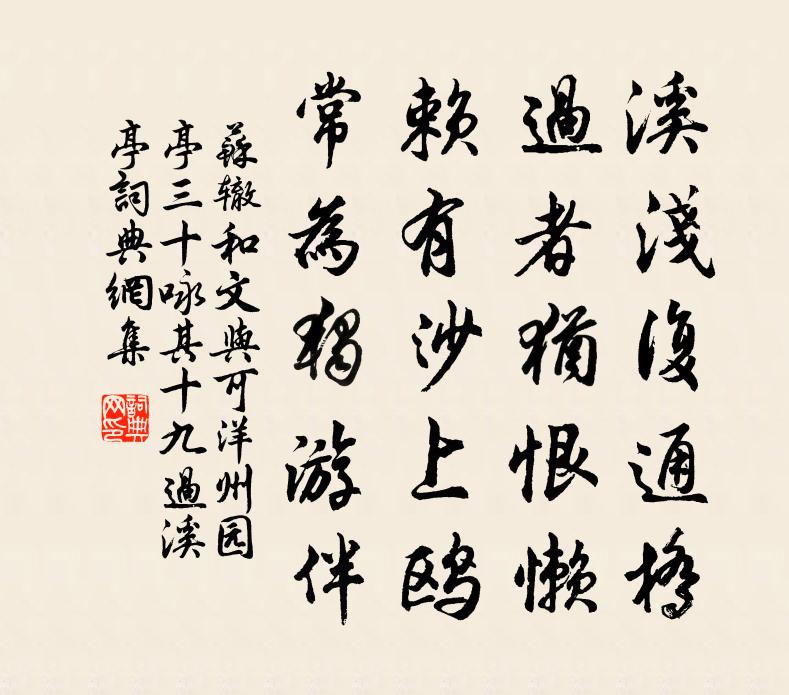 溪淺復通橋
過者猶恨懶
賴有沙上鸥
常為獨游伴
蘇辙和文與可洋州园
亭三十咏其十九過溪
亭詞典網集
詞典网印